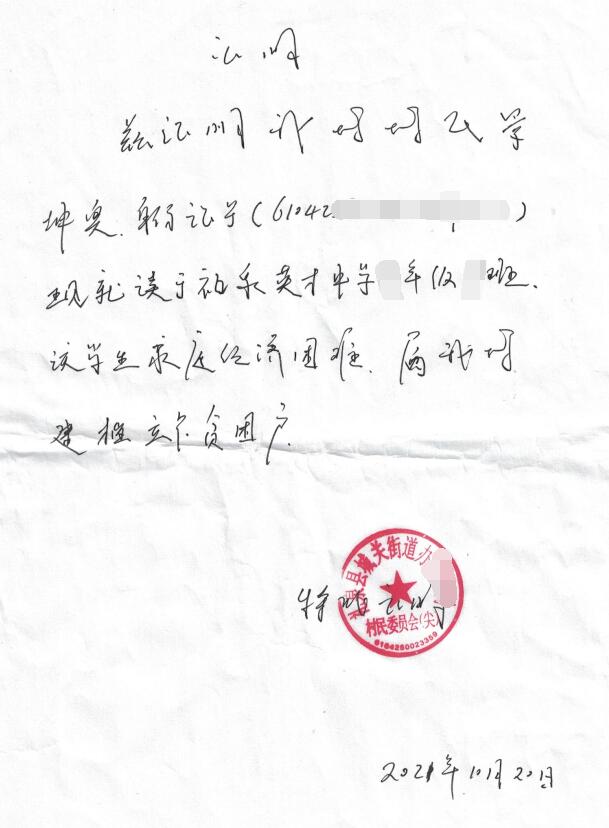 证明
兹证明我村村民学
坤奥.身份证号(61042
现就读于礼泉英才中学 年级 班.
该学生家庭经济困难.属我村
建档立卡贫困户.
县城关街道办
特此证明
村民委员会(尖)
6104250023359
2021年10月20日